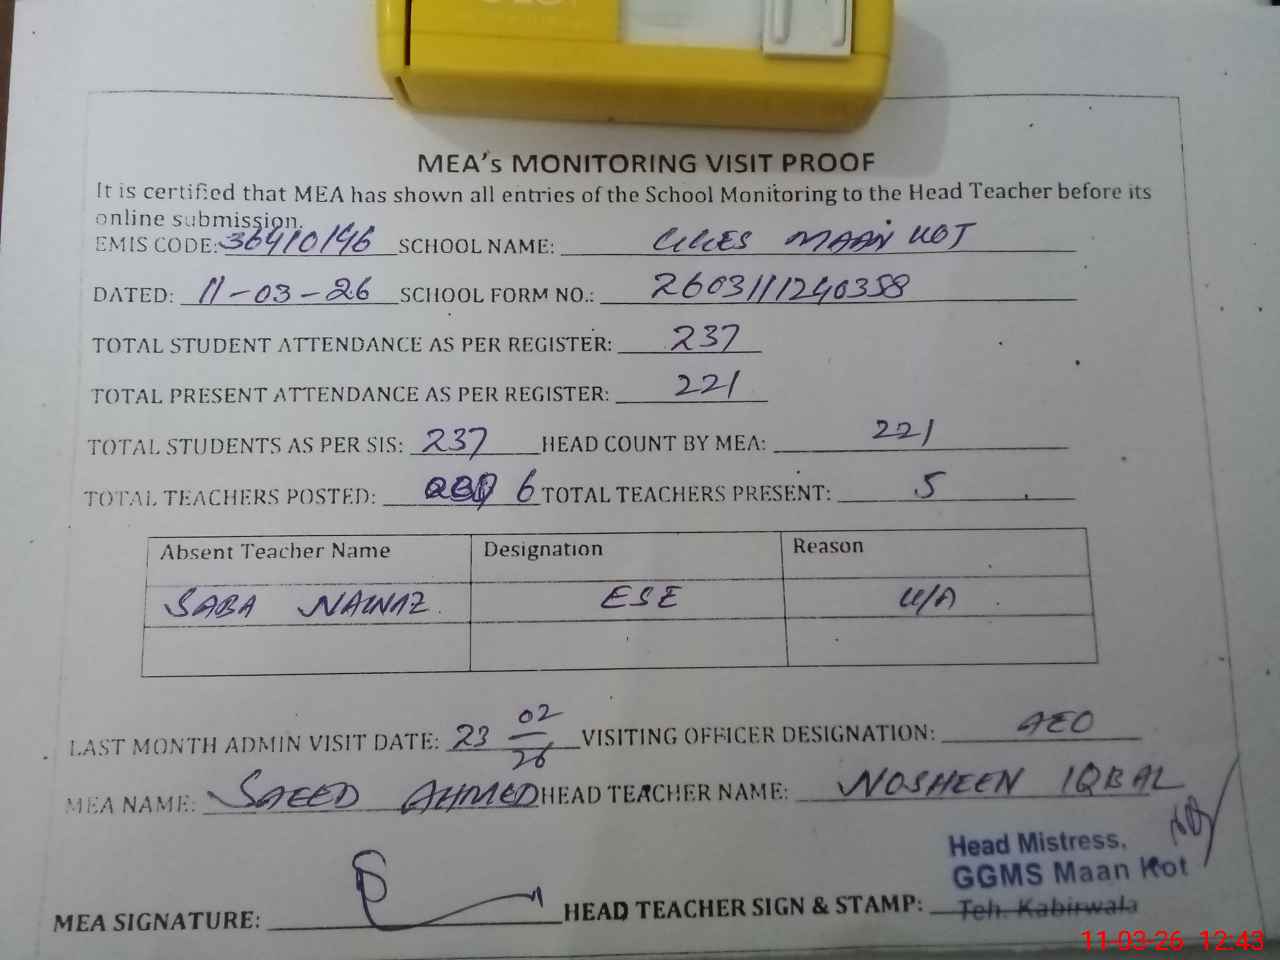 MEA's MONITORING VISIT PROOF
It is certified that MEA has shown all entries of the School Monitoring to the Head Teacher before its
online submission.
EMIS CODE: 36410146 SCHOOL NAME: GGES MAAN KOT
DATED: 11-03-26 SCHOOL FORM NO.: 2603111240358
TOTAL STUDENT ATTENDANCE AS PER REGISTER: 237
TOTAL PRESENT ATTENDANCE AS PER REGISTER: 221
TOTAL STUDENTS AS PER SIS: 237 HEAD COUNT BY MEA: 221
TOTAL TEACHERS POSTED: 6 TOTAL TEACHERS PRESENT: 5
Absent Teacher Name Designation Reason
SABA NAWAZ ESE U/A
LAST MONTH ADMIN VISIT DATE: 23 02/26 VISITING OFFICER DESIGNATION: AEO
MEA NAME: SAEED AHMED HEAD TEACHER NAME: NOSHEEN IQBAL
Head Mistress,
GGMS Maan Kot
MEA SIGNATURE: HEAD TEACHER SIGN & STAMP: Teh. Kabirwala
11-03-26 12:43